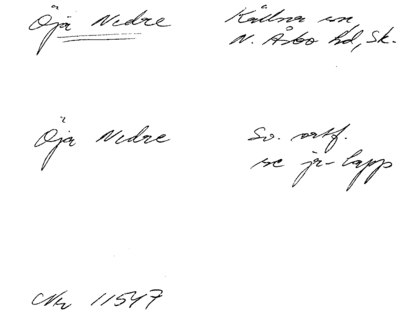 Öja Nedre
Källna sn
N. Åsbo hd, Sk.
Öja Nedre
Sv. ortf.
se ja-lapp
Nr 11547